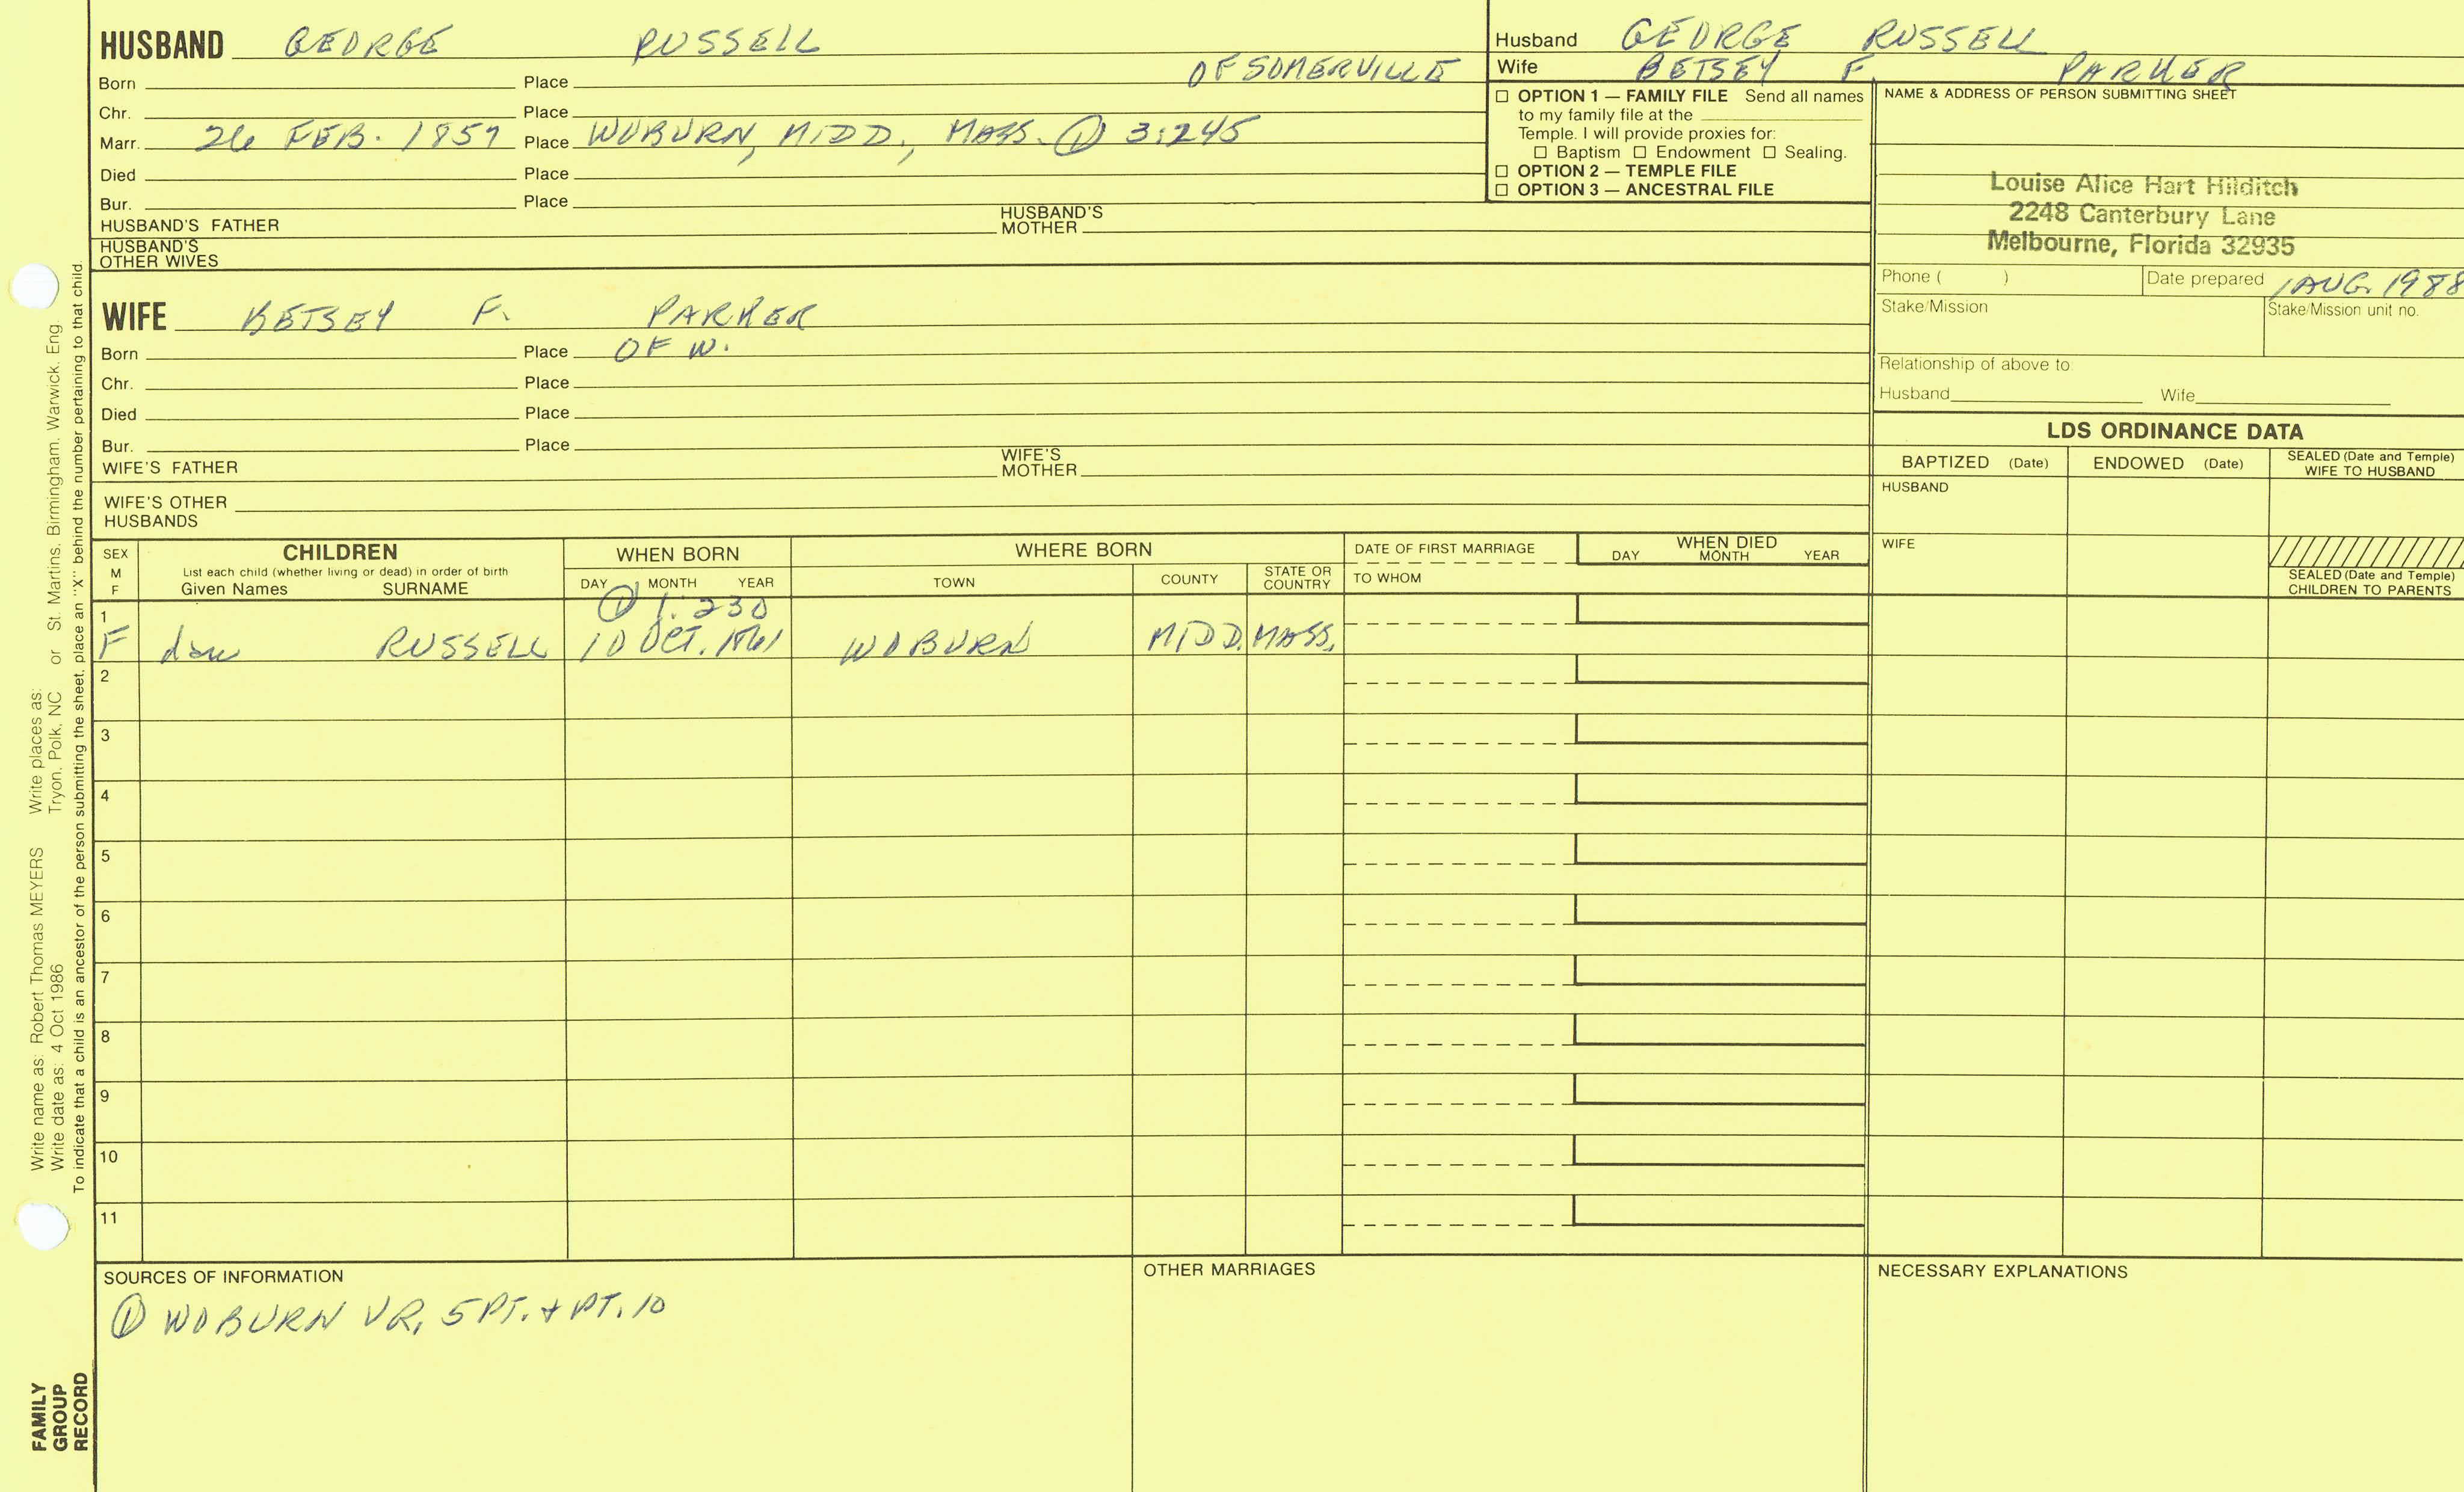 HUSBAND GEORGE RUSSELL
OF SOMERVILLE
Born Place
Chr. Place
Marr. 26 FEB. 1857 Place WOBURN, MIDD., MASS. ① 3:245
Died Place
Bur. Place
HUSBAND'S FATHER HUSBAND'S MOTHER
HUSBAND'S OTHER WIVES
WIFE BETSEY F. PARKER
Born Place OF W.
Chr. Place
Died Place
Bur. Place
WIFE'S FATHER WIFE'S MOTHER
WIFE'S OTHER HUSBANDS
Husband GEORGE RUSSELL
Wife BETSEY F. PARKER
☐ OPTION 1 — FAMILY FILE Send all names
to my family file at the
Temple. I will provide proxies for:
☐ Baptism ☐ Endowment ☐ Sealing.
☐ OPTION 2 — TEMPLE FILE
☐ OPTION 3 — ANCESTRAL FILE
NAME & ADDRESS OF PERSON SUBMITTING SHEET
Louise Alice Hart Hilditch
2248 Canterbury Lane
Melbourne, Florida 32935
Phone ( ) Date prepared 1 AUG. 1988
Stake/Mission Stake/Mission unit no.
Relationship of above to:
Husband Wife
LDS ORDINANCE DATA
BAPTIZED (Date) ENDOWED (Date) SEALED (Date and Temple) WIFE TO HUSBAND
HUSBAND
WIFE
SEALED (Date and Temple)
CHILDREN TO PARENTS
SEX M F
CHILDREN
List each child (whether living or dead) in order of birth
Given Names SURNAME
WHEN BORN
DAY MONTH YEAR
WHERE BORN
TOWN COUNTY STATE OR COUNTRY
DATE OF FIRST MARRIAGE
TO WHOM
WHEN DIED
DAY MONTH YEAR
① 1:230
1 F dau RUSSELL 10 OCT. 1861 WOBURN MIDD. MASS.
2
3
4
5
6
7
8
9
10
11
SOURCES OF INFORMATION
① WOBURN VR, 5 PT. + PT. 10
OTHER MARRIAGES
NECESSARY EXPLANATIONS
Write name as: Robert Thomas MEYERS Write places as:
Write date as: 4 Oct 1986 Tryon, Polk, NC or St. Martins, Birmingham, Warwick, Eng.
To indicate that a child is an ancestor of the person submitting the sheet, place an "X" behind the number pertaining to that child.
FAMILY
GROUP
RECORD